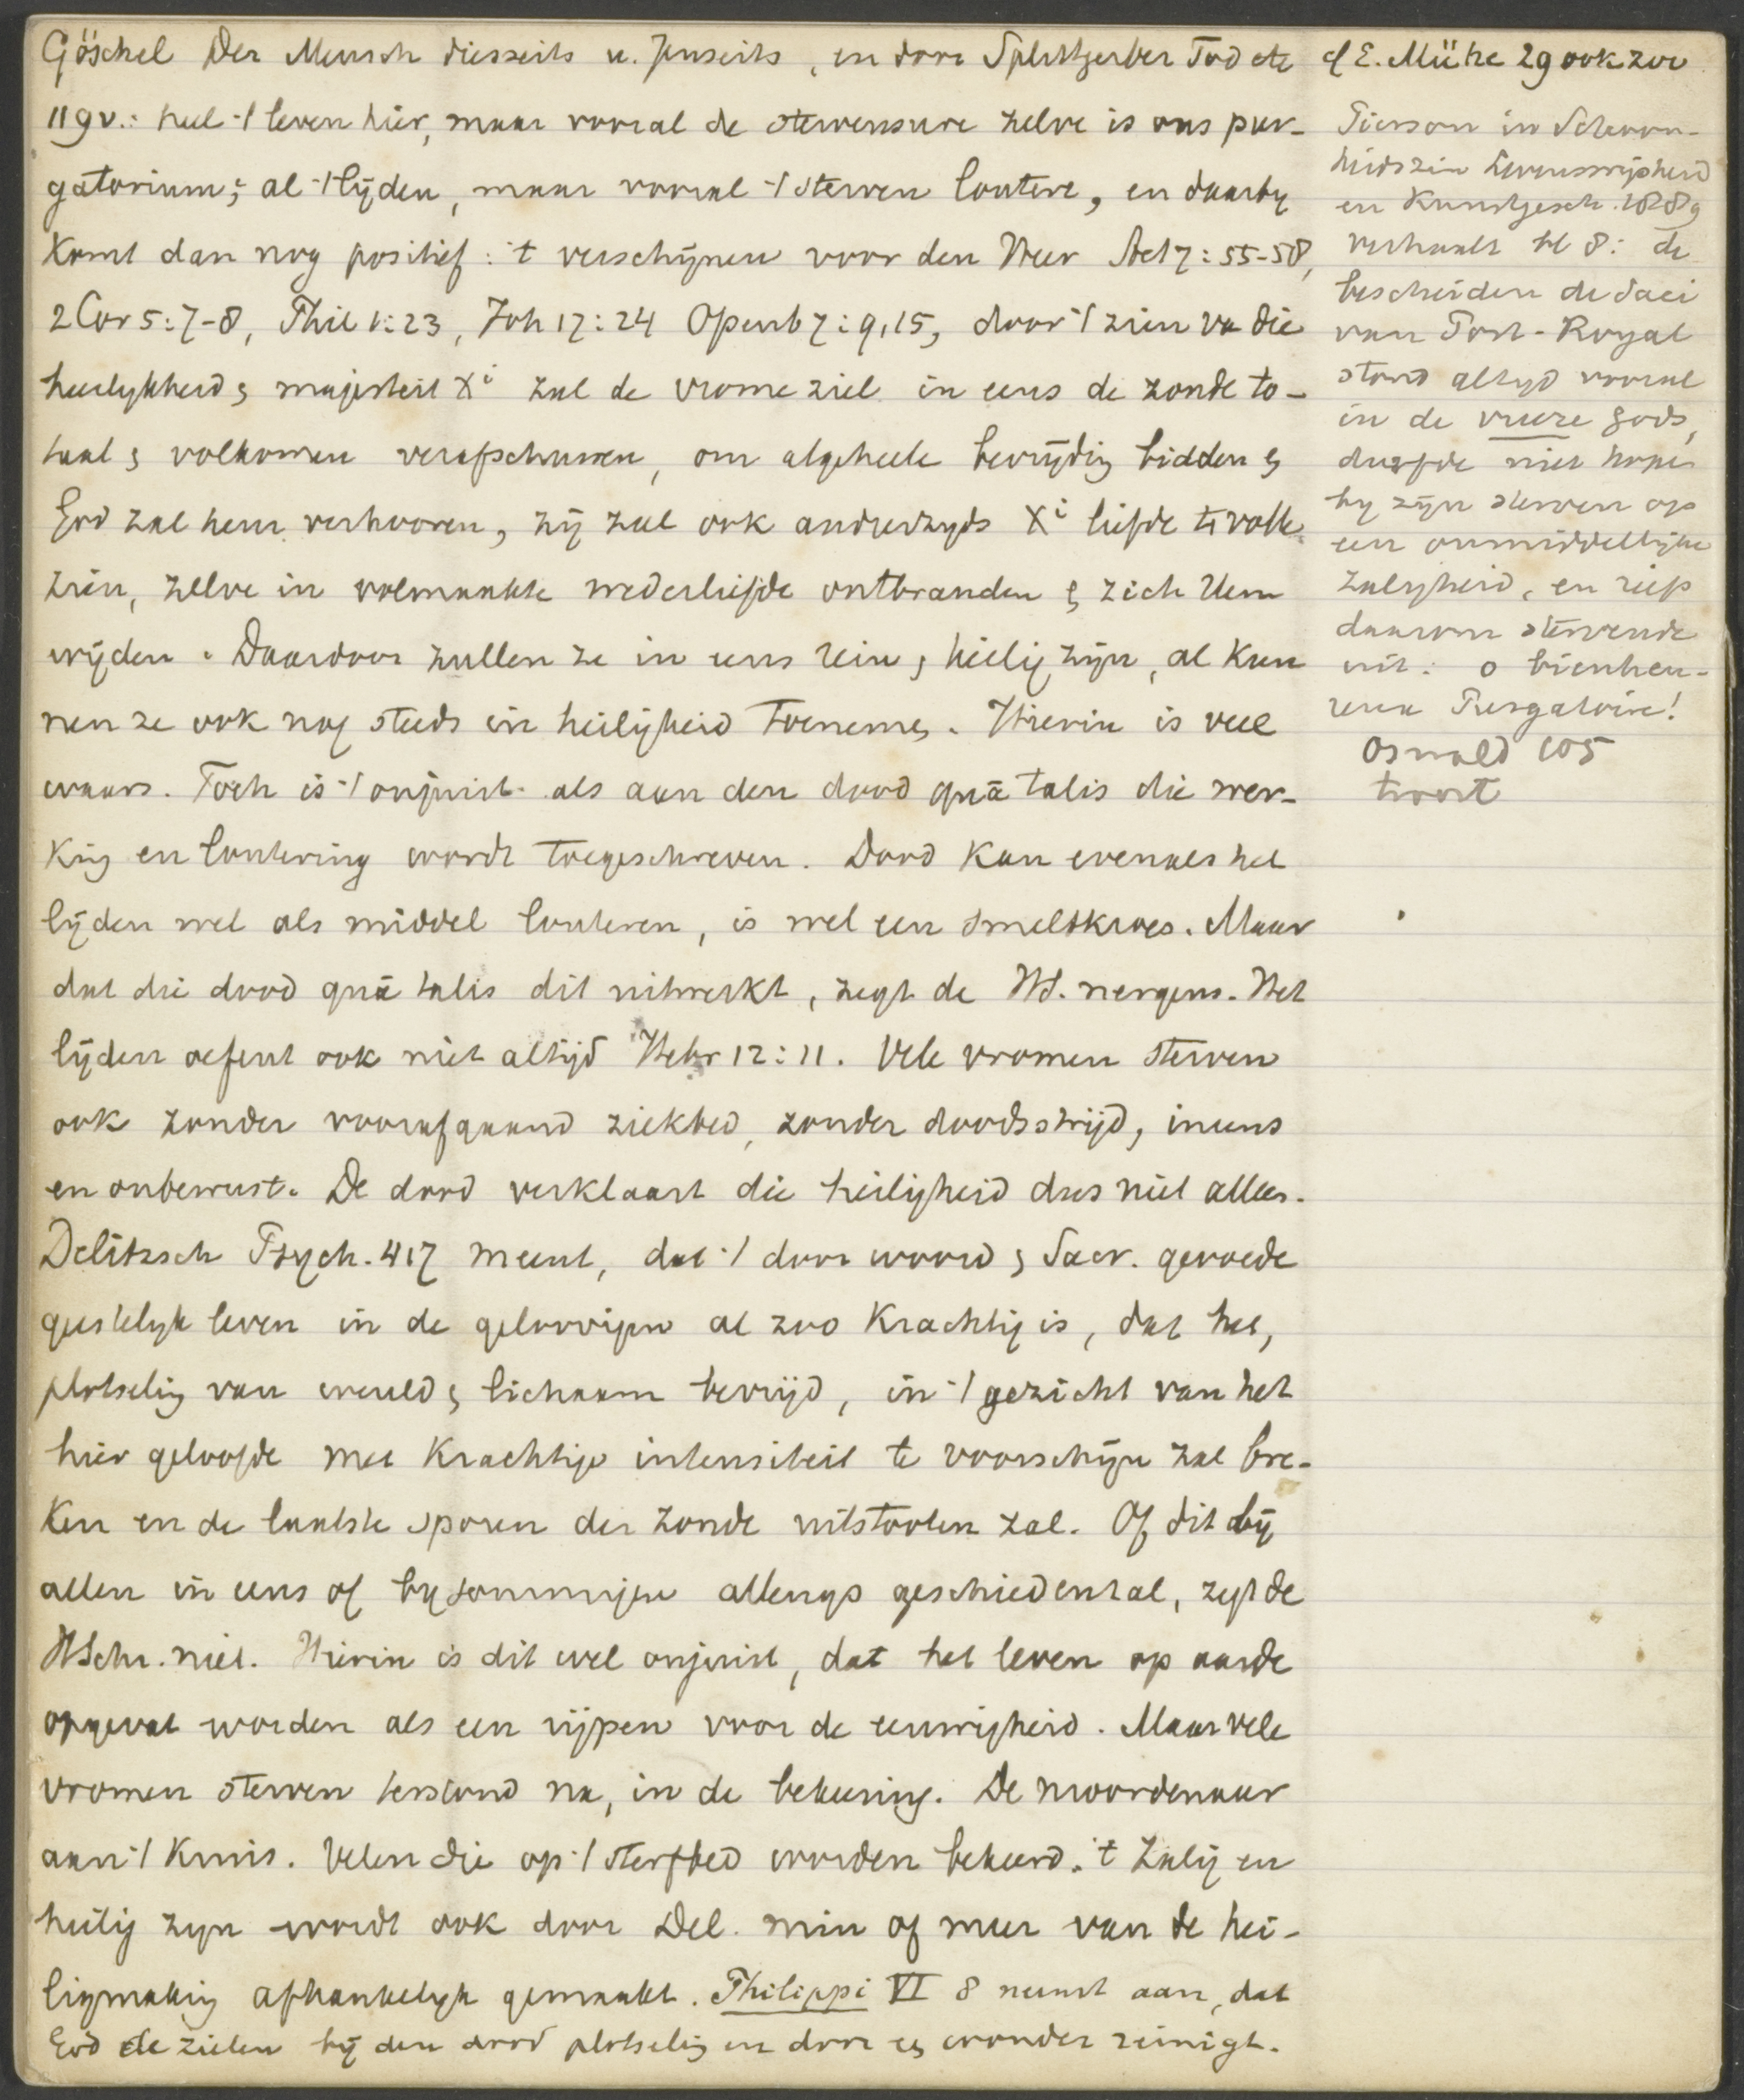 Göschel Der Mensch diesseits u. Jenseits, en door Splittgerber Tod etc
119 v.: heel 't leven hier, maar vooral de stervensure zelve is ons pur-
gatorium; al 't lijden, maar vooral 't sterven loutere, en daarbij
komt dan nog positief: 't verschijnen voor den Heer Act 7:55-58,
2 Cor 5:7-8, Phil 1:23, Joh 17:24 Openb 7:9,15, door 't zien va die
heerlykheid & majesteit Xi zal de vrome ziel in eens de zonde to-
taal & volkomen verafschuwen, om algeheele bevrijdig bidden &
God zal hem verhooren, zij zal ook anderzyds Xi liefde ti volle
zien, zelve in volmaakte wederliefde ontbranden & zich Hem
wijden. Daardoor zullen ze in eens rein & heilig zijn, al kun
nen ze ook nog steeds in heiligheid toenemen. Hierin is veel
waars. Toch is 't onjuist als aan den dood quā talis die wer-
king en loutering wordt toegeschreven. Dood kan evenals het
lijden wel als middel louteren, is wel een smeltkroes. Maar
dat die dood quā talis dit uitwerkt, zegt de HS. nergens. Het
lijden oefent ook niet altijd Hebr 12:11. Vele vromen sterven
ook zonder voorafgaand ziekbed, zonder doodsstrijd, ineens
en onbewust. De dood verklaart die heiligheid dus niet alles.
Delitzsch Psych. 417 meent, dat 't door woord & Sacr. gevoede
geestelyk leven in de geloovigen al zoo krachtig is, dat het,
plotselig van wereld & lichaam bevrijd, in 't gezicht van het
hier geloofde met krachtige intensiteit te voorschijn zal bre-
ken en de laatste sporen der zonde uitstooten zal. Of dit bij
allen in eens of by sommigen allengs geschieden zal, zegt de
HSchr. niet. Hierin is dit wel onjuist, dat het leven op aarde
opgevat worden als een rijpen voor de eeuwigheid. Maar vele
vromen sterven terstond na, in de bekeering. De moordenaar
aan 't kruis. Velen die op 't sterfbed worden bekeerd. 't Zalig en
heilig zyn wordt ook door Del. min of meer van de hei-
ligmakig afhankelyk gemaakt. Philippi VI 8 neemt aan, dat
God de zielen bij den dood plotselig en door een wonder reinigt.
cf E. Mühe 29 ook zoo
Pierson in Schoon-
heidszin Levenswijsheid
en Kunstgesch. 1828
verhaalt bl 8: de
bescheiden de Saci
van Port-Royal
stond altyd vooral
in de vreeze Gods,
durfde niet hopen
by zijn sterven op
een onmiddellijke
zaligheid, en riep
daarom stervende
uit: o bienheu-
reux Purgatoire!
Oswald 105
troost